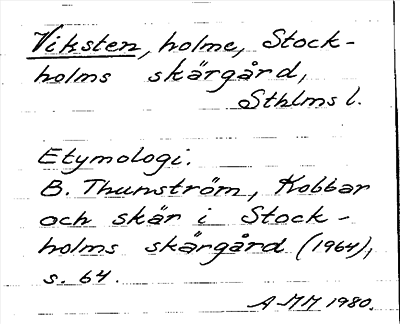 Viksten, holme, Stock-
holms skärgård,
Sthlms l.
Etymologi.
B. Thunström, Kobbar
och skär i Stock-
holms skärgård (1964),
s. 64.
A-MM 1980.